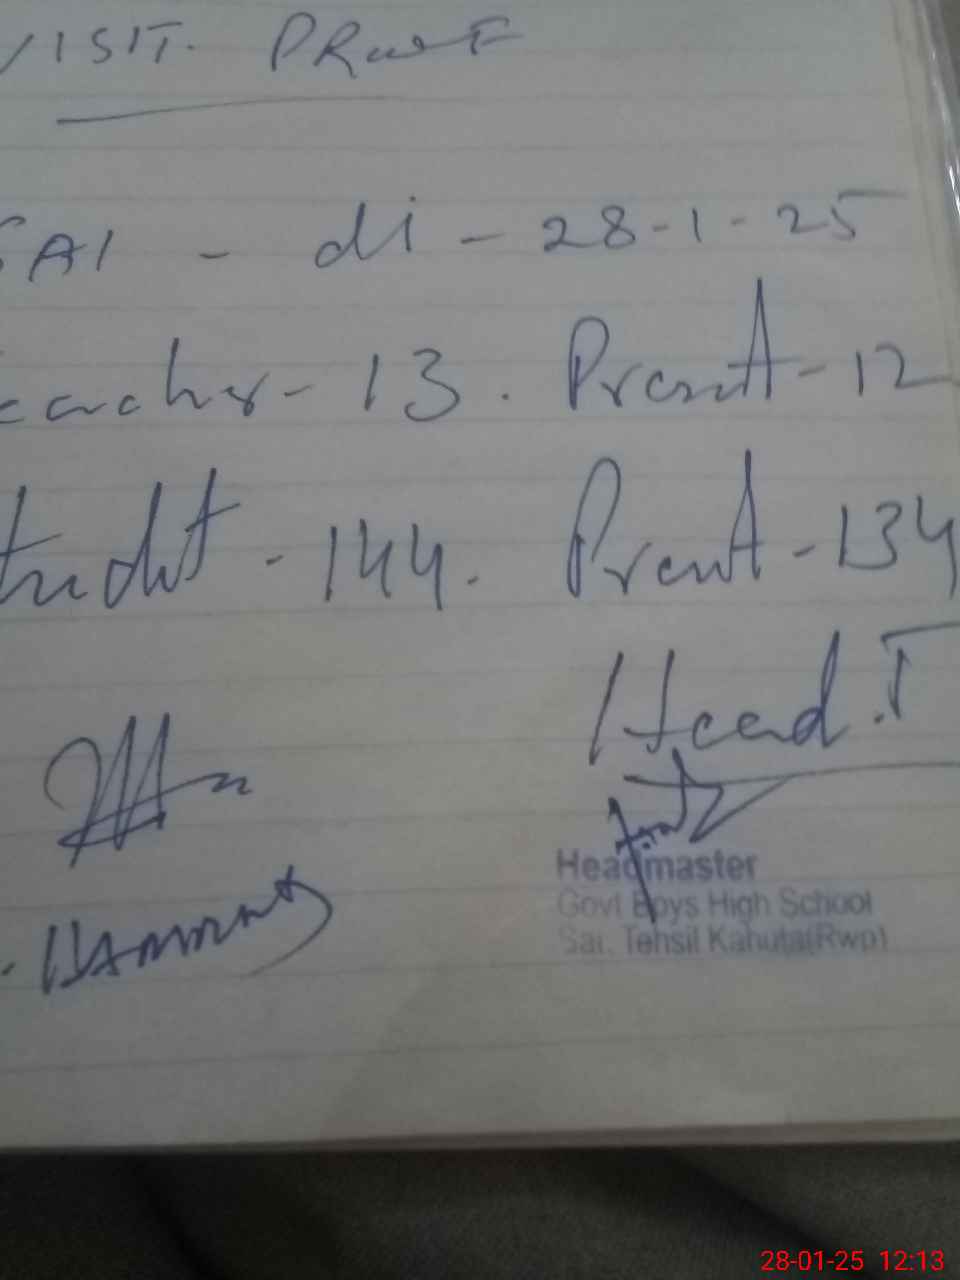 VISIT. PRooF
SAI - dt - 28-1-25
Teacher - 13. Present - 12
Student - 144. Present - 134
Head.T
Headmaster
Govt Boys High School
Sai, Tehsil Kahuta(Rwp)
28-01-25 12:13